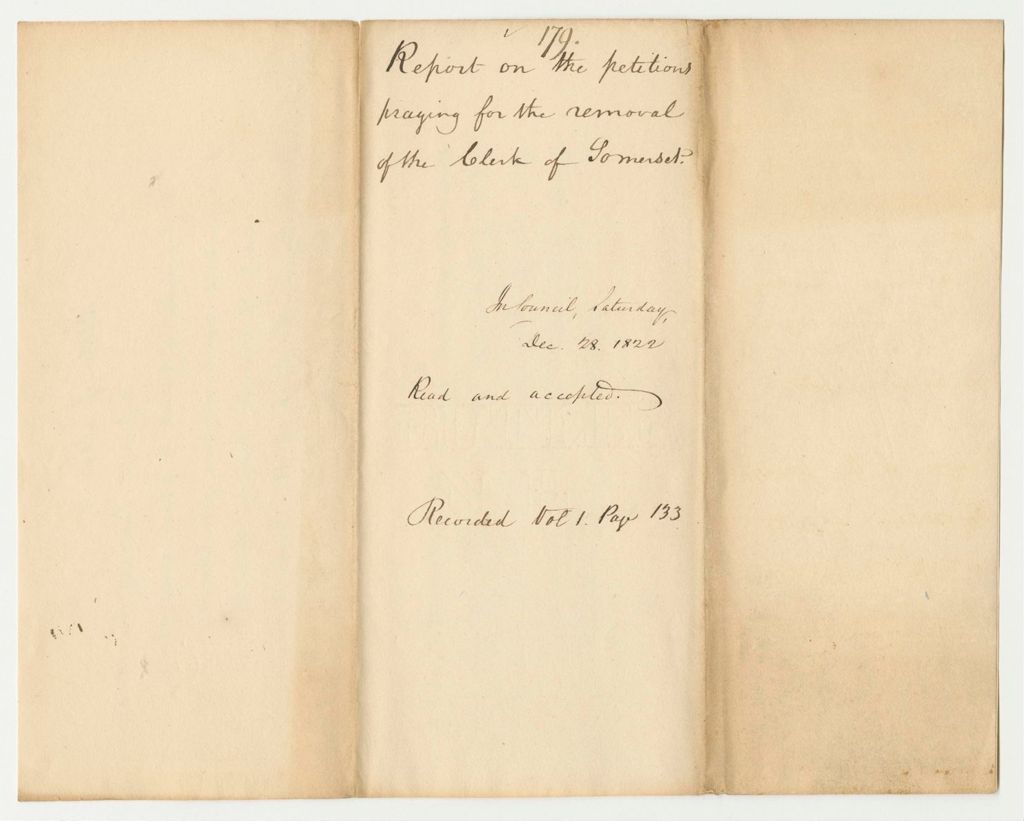 179.
Report on the petitions
praying for the removal
of the Clerk of Somerset.
In Council, Saturday,
Dec. 28. 1822
Read and accepted.
Recorded Vol 1. Page 133